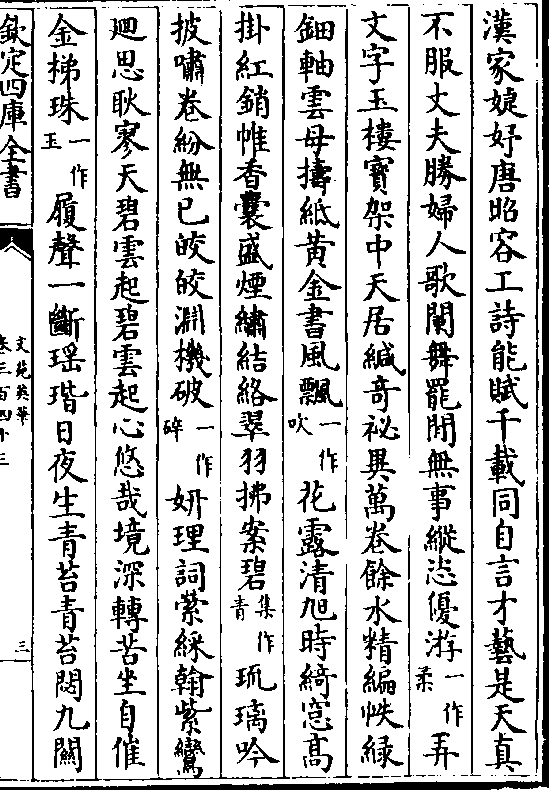 漢家婕妤唐昭容工詩能賦千載同自言才藝是天真
不服丈夫勝婦人歌闌舞罷閒無事縱恣優游一作柔弄
文字玉樓寶架中天居緘奇祕異萬卷餘水精編帙綠
鈿軸雲母擣紙黃金書風飄一作吹花露清旭時綺窓高
掛紅銷帷香囊盛煙繡結絡翠羽拂案碧集作青琉璃吟
披嘯卷紛無已皎皎淵機破一作碎妍理詞縈綵翰紫鸞
廻思耿寥天碧雲起碧雲起心悠哉境深轉苦坐自催
金梯珠一作玉履聲一斷瑶瑎日夜生青苔青苔閟九關
欽定四庫全書
文苑英華
卷三百四十三
三